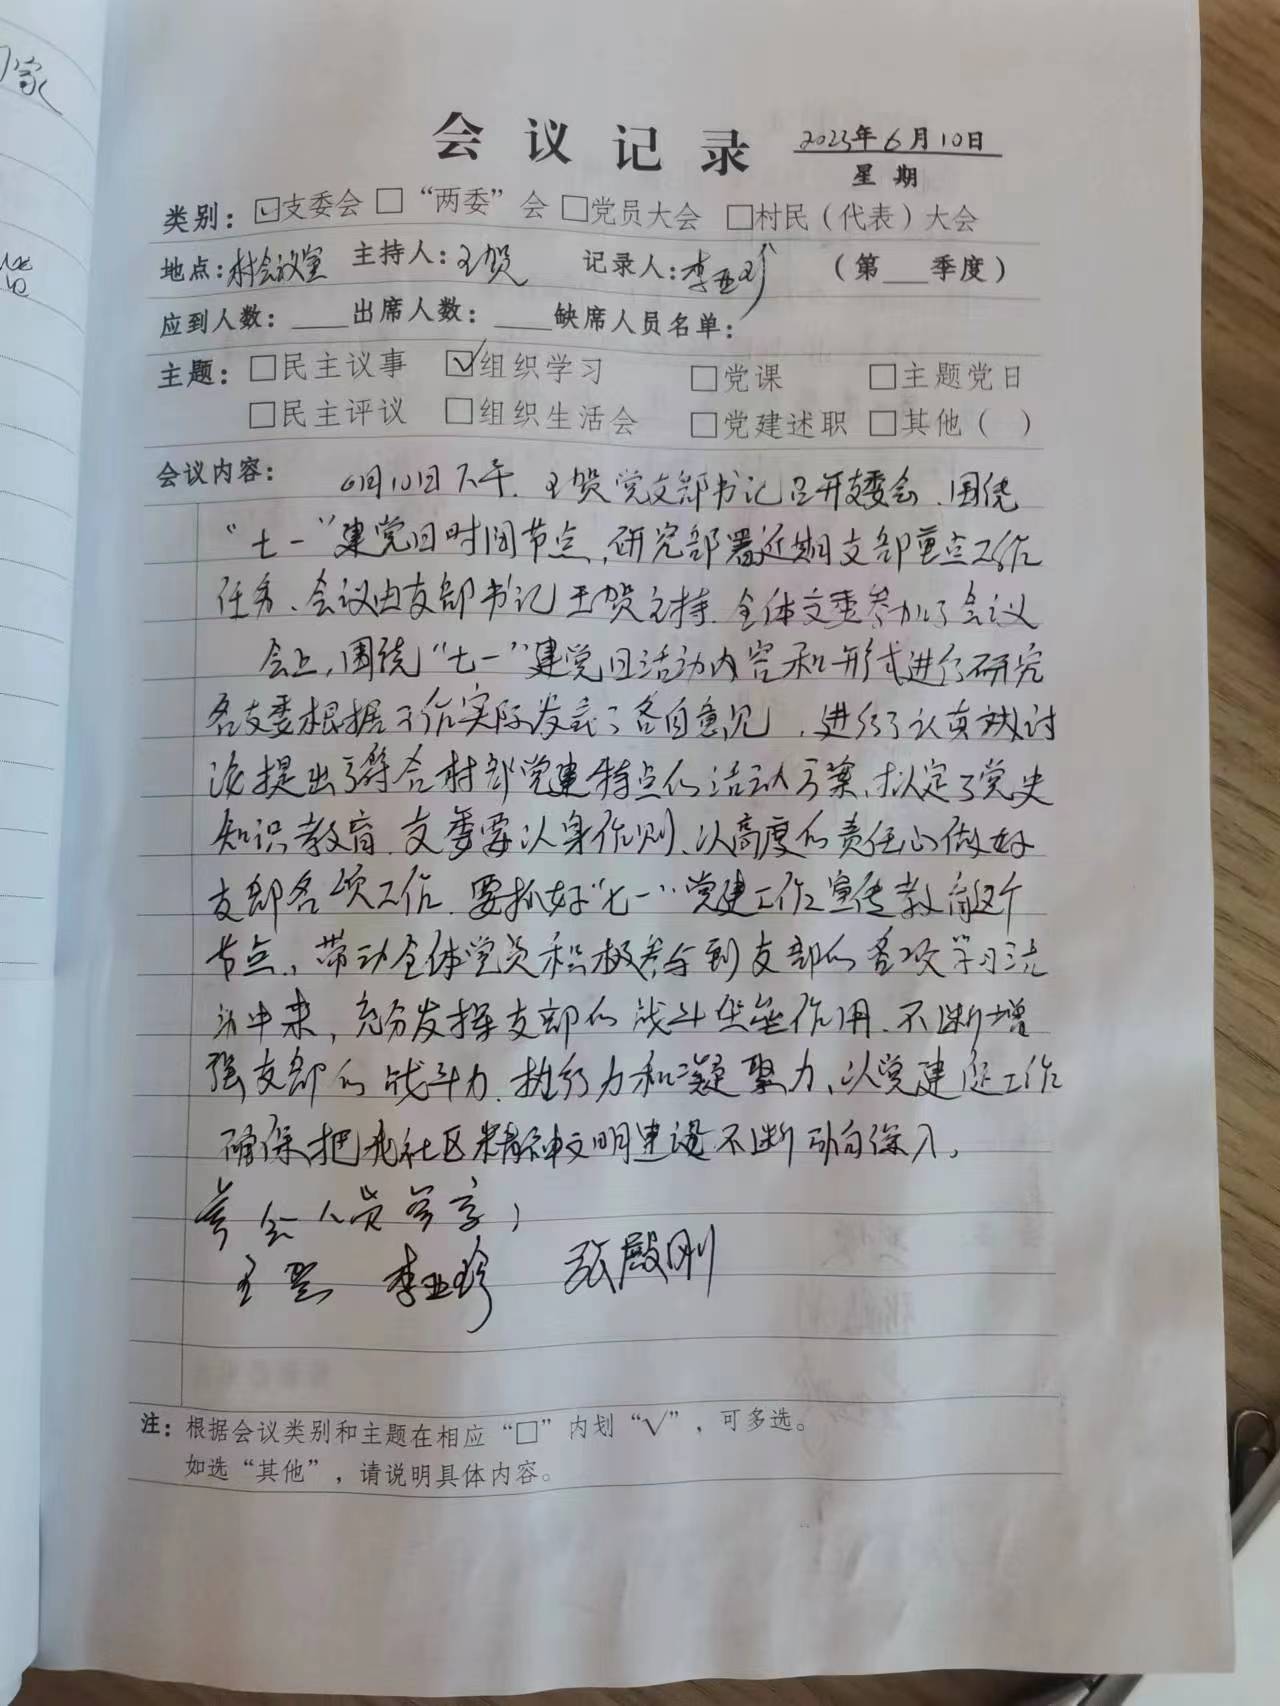 会议记录 2023年6月10日
星期
类别：☑支委会 □“两委”会 □党员大会 □村民（代表）大会
地点：村会议室 主持人：王贺 记录人：李亚珍 （第___季度）
应到人数：____出席人数：____缺席人员名单：
主题：□民主议事 ☑组织学习 □党课 □主题党日
□民主评议 □组织生活会 □党建述职 □其他（ ）
会议内容： 6月10日下午、王贺党支部书记召开支委会、围绕
“七一”建党日时间节点，研究部署近期支部重点工作
任务、会议由支部书记王贺主持、全体支委参加了会议
会上，围绕“七一”建党日活动内容和形式进行研究
各支委根据工作实际发表了各自意见，进行了认真讨
论提出了符合村部党建特点的活动方案、拟定了党史
知识教育、支委要以身作则、以高度的责任心做好
支部各项工作、要抓好“七一”党建工作宣传教育这个
节点，带动全体党员积极参与到支部的各项学习活
动中来，充分发挥支部的战斗堡垒作用、不断增
强支部的战斗力、执行力和凝聚力、以党建促工作
确保把我社区精神文明建设不断引向深入。
参会人员签字；
王贺 李亚珍 张殿刚
注：根据会议类别和主题在相应“□”内划“√”，可多选。
如选“其他”，请说明具体内容。
家